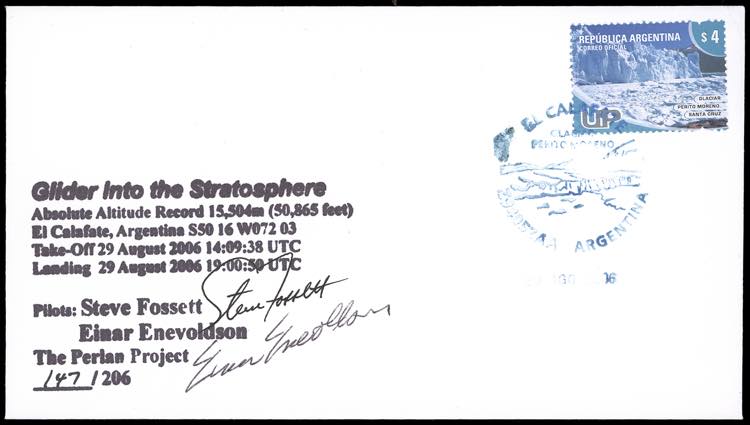 REPÚBLICA ARGENTINA $4
CORREO OFICIAL
GLACIAR
PERITO MORENO
SANTA CRUZ
UP
EL CALAFATE
GLACIAR
PERITO MORENO
ARGENTINA
Glider Into the Stratosphere
Absolute Altitude Record 15,504m (50,865 feet)
El Calafate, Argentina S50 16 W072 03
Take-Off 29 August 2006 14:09:38 UTC
Landing 29 August 2006 19:00:50 UTC
Pilots: Steve Fossett Steve Fossett
Einar Enevoldson
The Perlan Project Einar Enevoldson
147 / 206